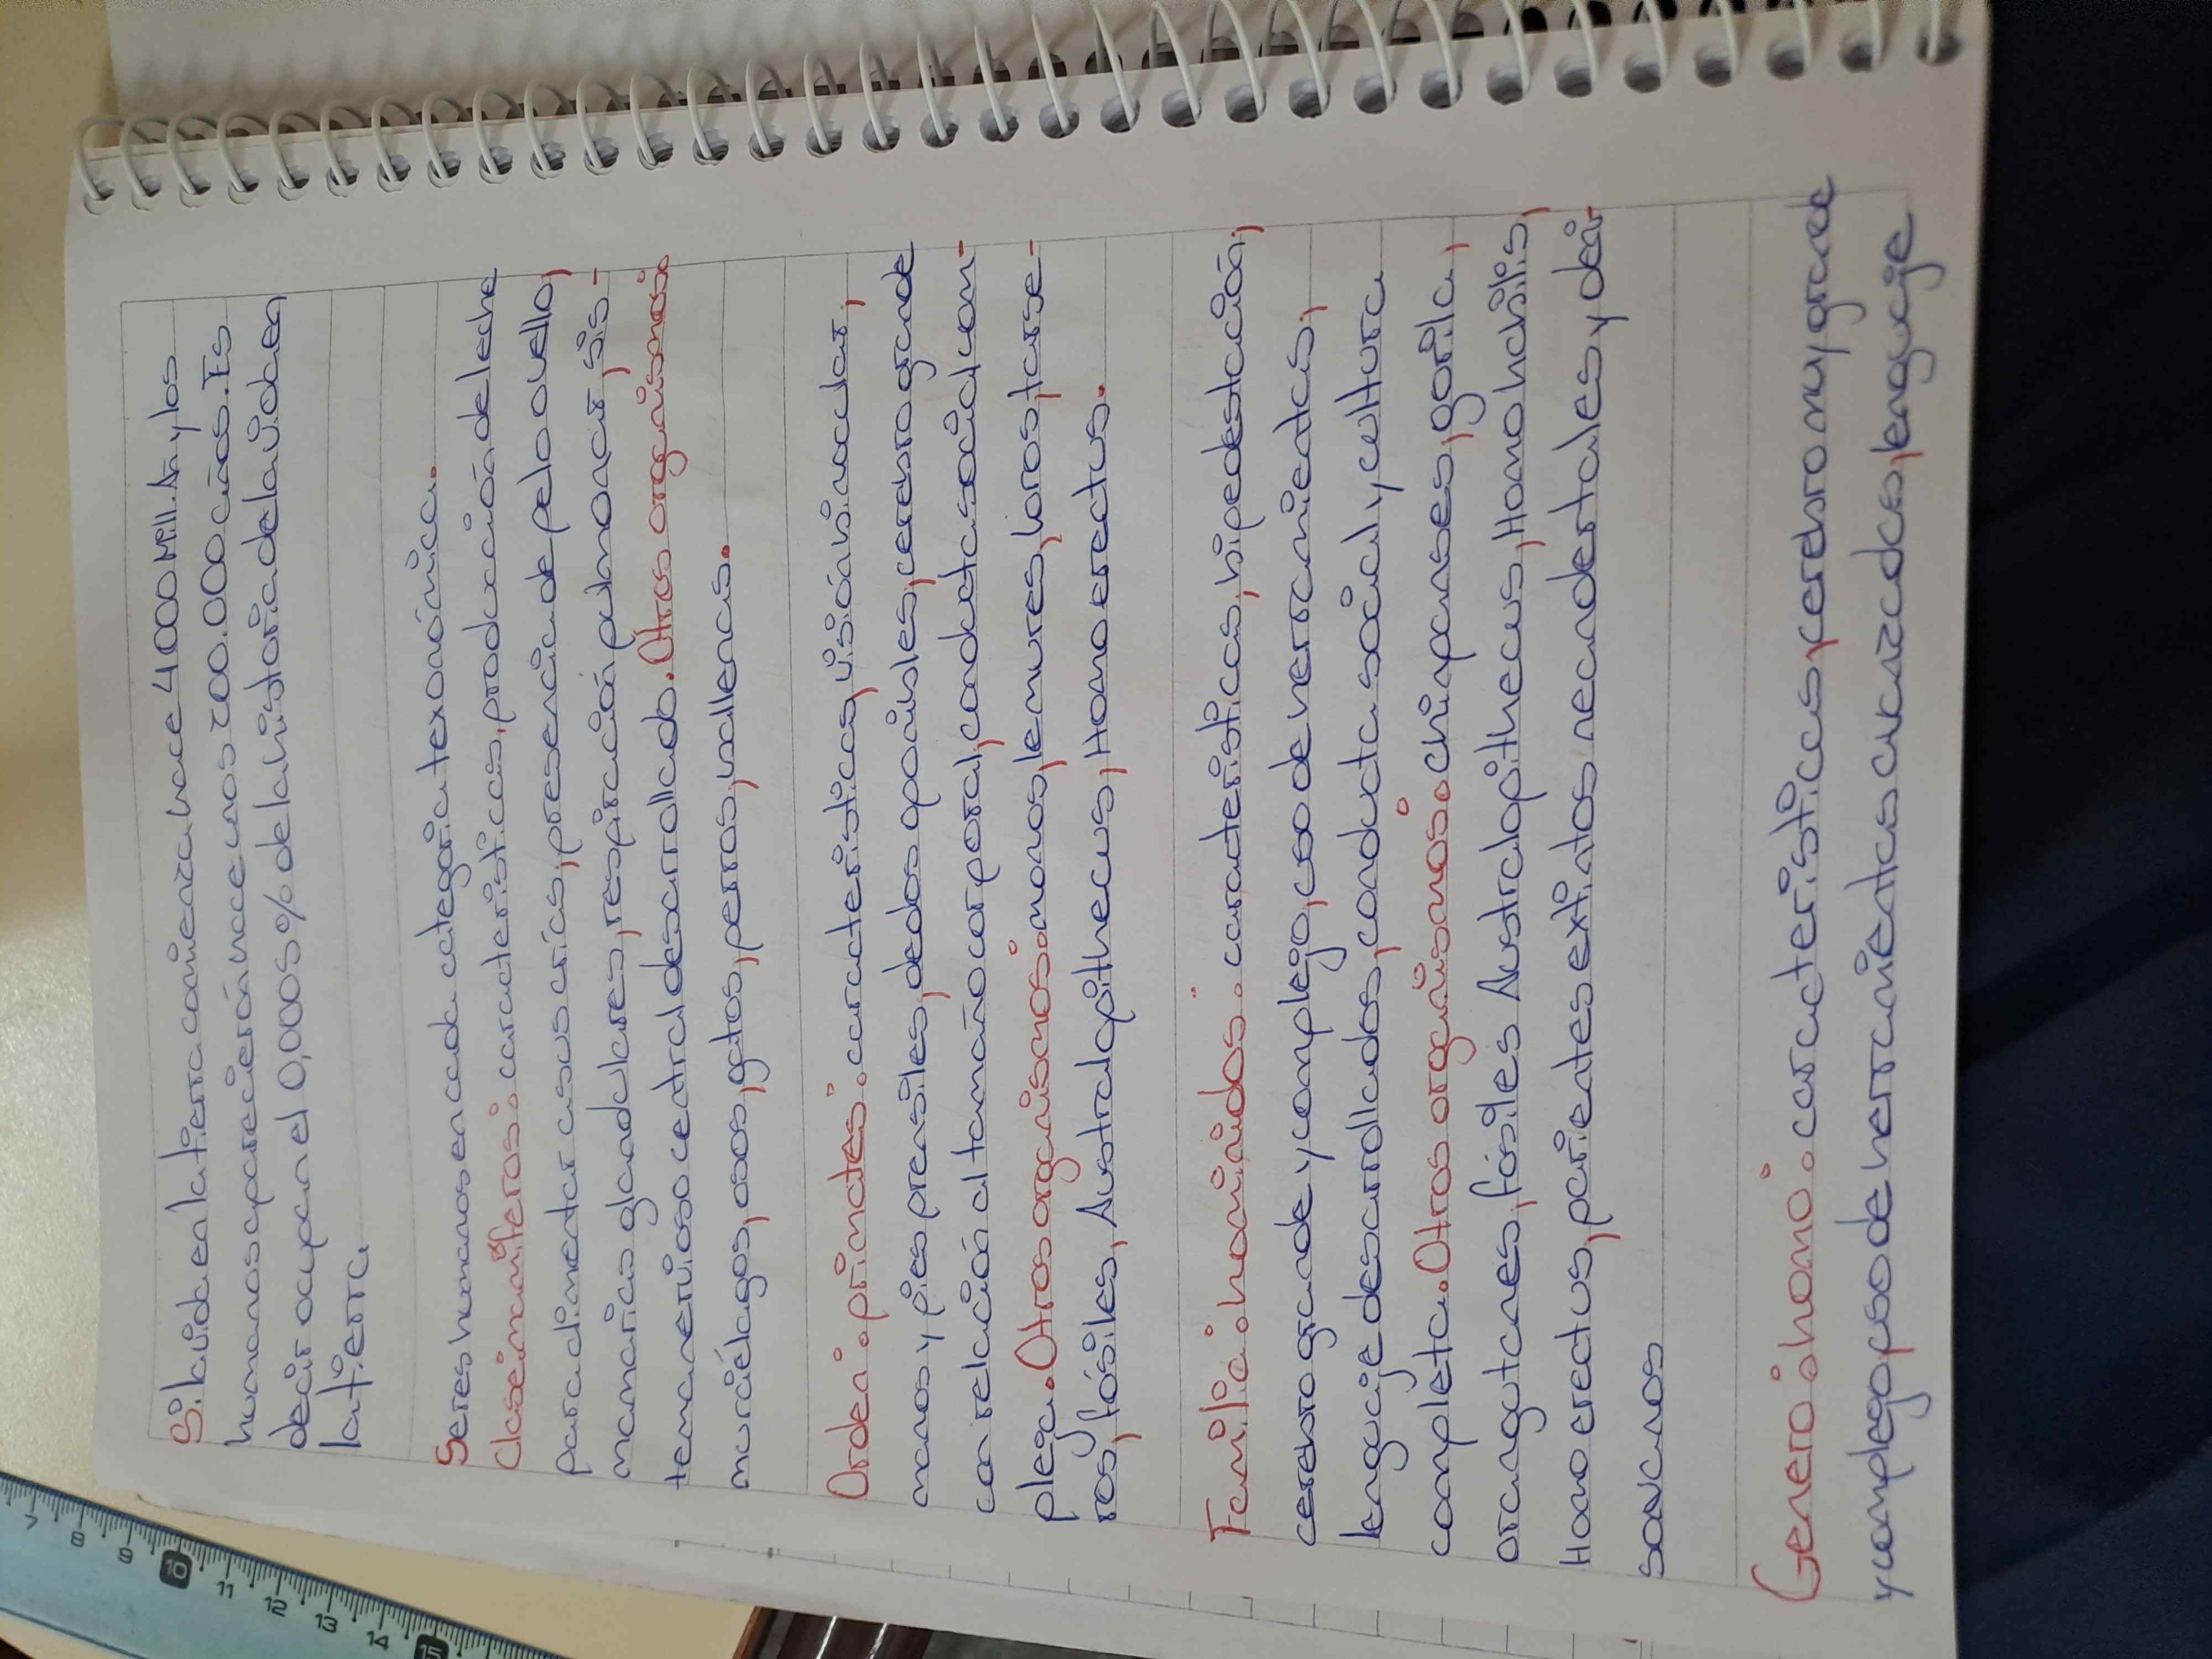 Si la vida en la tierra comienza hace 4000 Mill. A y los
humanos aparecierón hace unos 200.000 años. Es
decir ocupan el 0,0005% de la historia de la vida en
la tierra
Seres humanos en cada categoria texonómica.
Clase: mamiferos: caracteristicas, producción de leche
para alimentar a sus crías, presencia de pelo o vello,
mamarias glandulares, respiración pulmonar, sis-
tema nervioso central desarrollado. Otros organismos:
murciélagos, osos, gatos, perros, vallenas.
Orden: primates: caracteristicas, visión binocular,
manos y pies prensiles, dedos oponibles, cerebro grande
con relación al tamaño corporal, conducta social com-
pleja. Otros organismos: monos, lemures, loros, tarse-
ros, fósiles, Australopithecus, Homo erectus.
Familia: hominidos: caracteristicas, bipedestación,
cerebro grande y complejo, uso de herramientas,
lenguaje desarrollados, conducta social y cultura
completa. Otros organismos: chimpanses, gorila,
orangutanes, fósiles Australopithecus, Homo habilis,
Homo erectus, parientes extintos neandertales, y deni-
sovanos
Genero: homo: caracteristicas, cerebro muy grande
y complego, uso de herramientas avanzadas, lenguaje
7
8
9
10
11
12
13
14
15